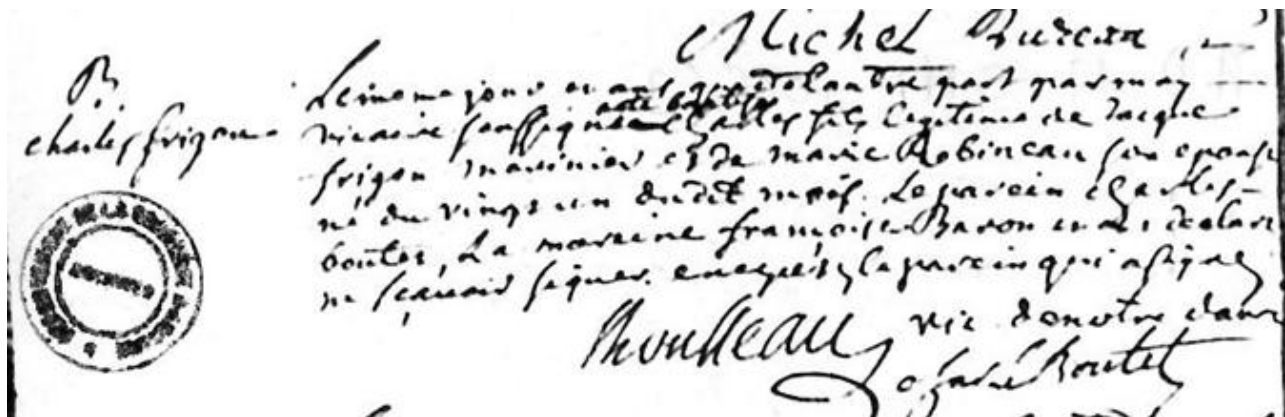 Michel Bureau
B.
charles frigon
Le meme jour et an que de lautre part par moy
vicaire soussigné a eté batisé Charles fils legitime de Jacque
frigon marinier et de marie Robineau son epouse
né du vingt un dudit mois. Le parein charles
boutet, La mareine françoise Baron declaré
ne sçavoir signer enquis, le parein qui a signé
Rousseau vic de notre dame
Boutet